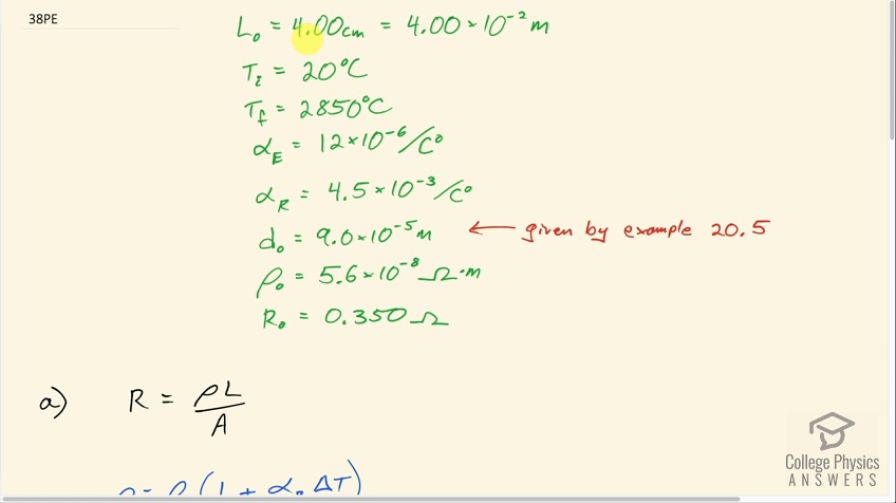 38PE
L₀ = 4.00cm = 4.00 × 10⁻² m
Tᵢ = 20°C
T_f = 2850°C
α_E = 12×10⁻⁶/C°
α_R = 4.5×10⁻³/C°
d₀ = 9.0×10⁻⁵ m ← given by example 20.5
ρ₀ = 5.6×10⁻⁸ Ω·m
R₀ = 0.350 Ω
a) R = ρL/A
ρ = ρ (1 + α ΔT)
College Physics
ANSWERS